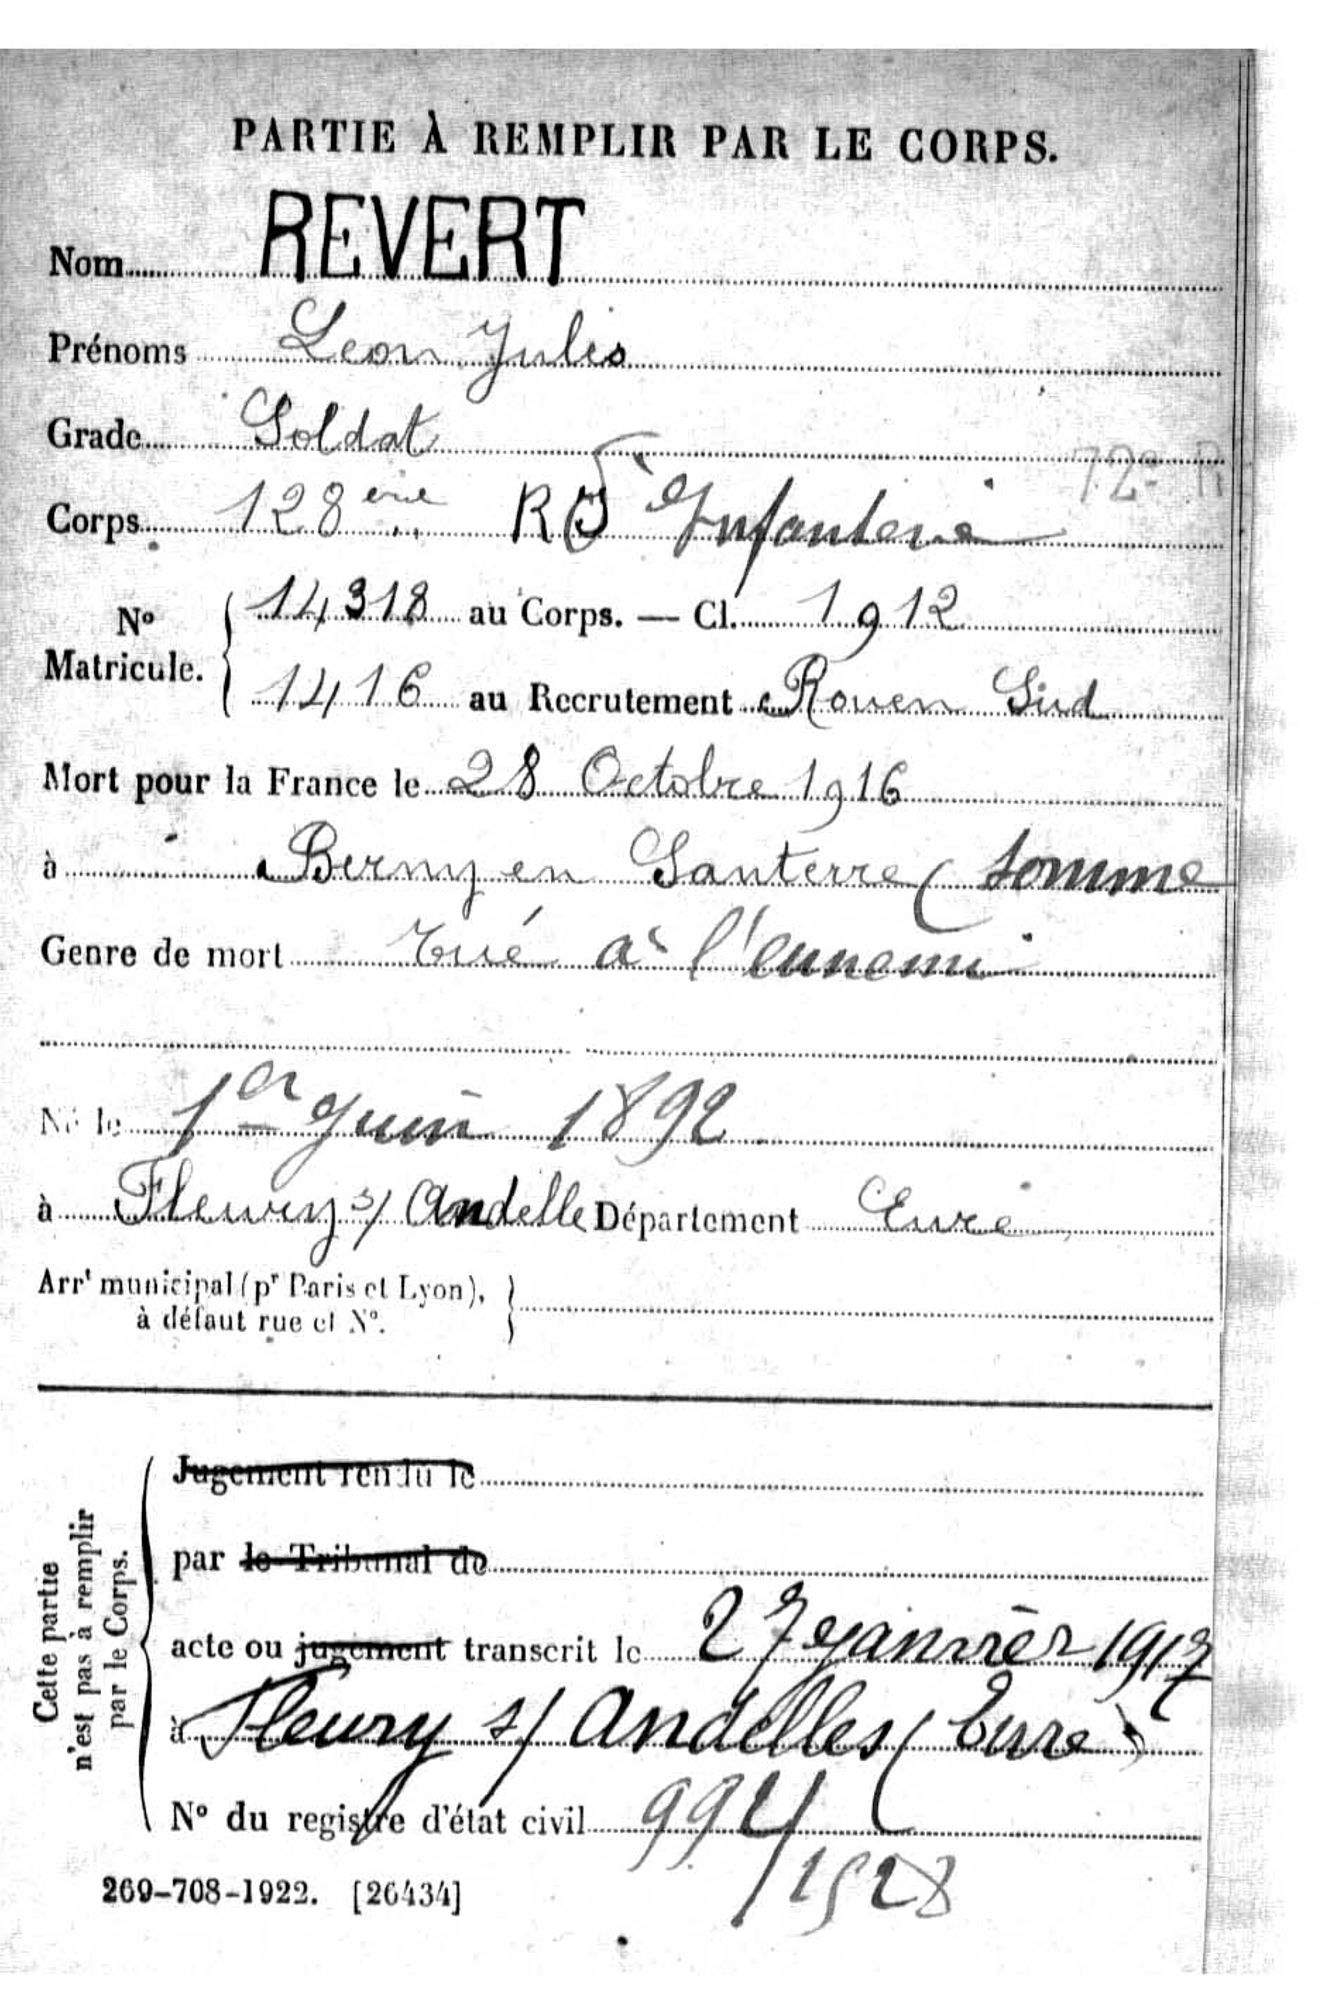 PARTIE À REMPLIR PAR LE CORPS.
Nom REVERT
Prénoms Leon Jules
Grade Soldat
72e R
Corps 128ème R I Infanterie
No Matricule. 14318 au Corps. — Cl. 1912
1416 au Recrutement Rouen Sud
Mort pour la France le 28 Octobre 1916
à Berny en Santerre (Somme
Genre de mort Tué à l'ennemi
Né le 1er Juin 1892
à Fleury s/ Andelle Département Eure
Arrt municipal (pr Paris et Lyon),
à défaut rue et No.
Cette partie
n'est pas à remplir
par le Corps.
Jugement rendu le
par le Tribunal de
acte ou jugement transcrit le 27 janvier 1917
à Fleury s/ Andelles (Eure)
No du registre d'état civil
994/1928
269-708-1922. [26434]